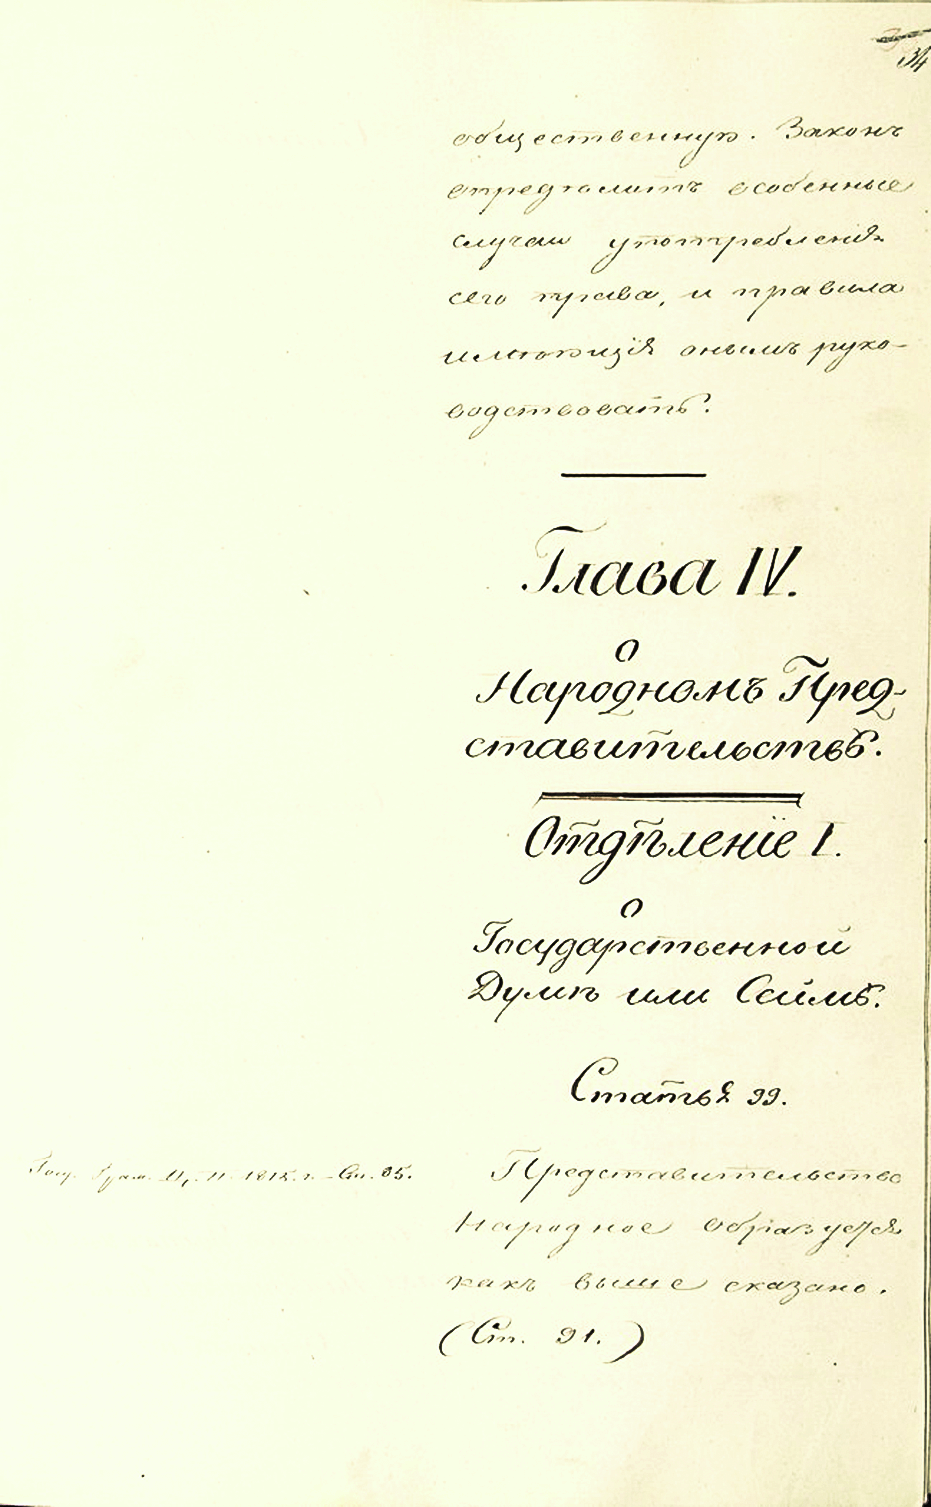 34
общественную. Законъ
опредѣлитъ особенные
случаи употребленія
сего права, и правила
имѣющія онымъ руко-
водствовать.
Глава IV.
О
Народномъ Пред-
ставительствѣ.
Отдѣленіе I.
О
Государственной
Думѣ или Сеймѣ.
Статья 99.
Госу. Грам. 1815. г. Ст. 85.
Представительство
Народное образуется
какъ выше сказано.
(Ст. 91.)